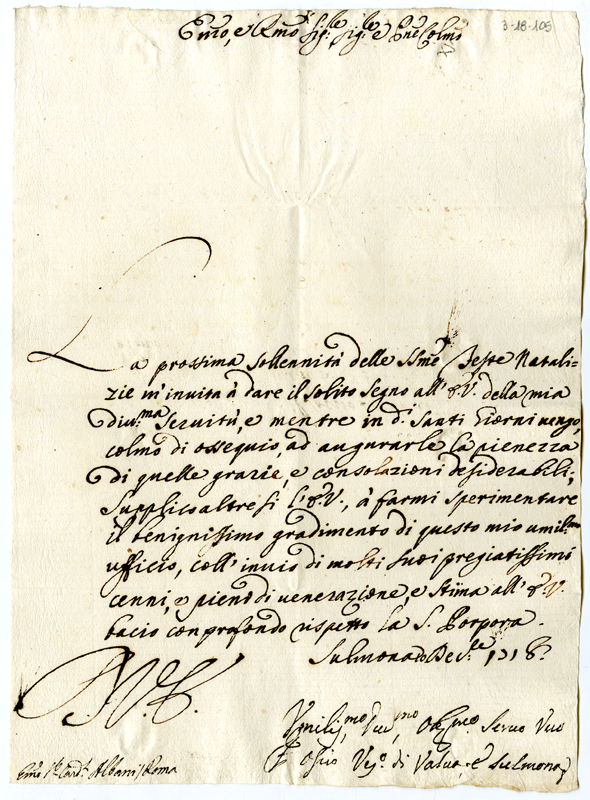 3-18-105
Em̃o, e Rmo Sig:re Sig:re e Pñe Colmo
La prossima sollennità delle SSm̃e Feste Natali-
zie m'inuita à dare il solito segno all' E.V. della mia
diu.ma Seruitù, e mentre in d.i Santi Giorni uengo,
colmo di ossequio, ad augurarle la pienezza
di quelle grazie, e consolazioni desiderabili;
Supplico altresì l'E.V., à farmi sperimentare
il benignissimo gradimento di questo mio umil.mo
ufficio, coll' inuio di molti suoi pregiatissimi
cenni, e pieno di uenerazione, e stima all' E.V.
bacio con profondo rispetto la S. Porpora.
Sulmona Dec.re 1718.
Vmiliss.mo Obblig.mo Seruo Vro
Vesc.o di Valua, e Sulmona
Em̃o S.r Card.l Albani / Roma